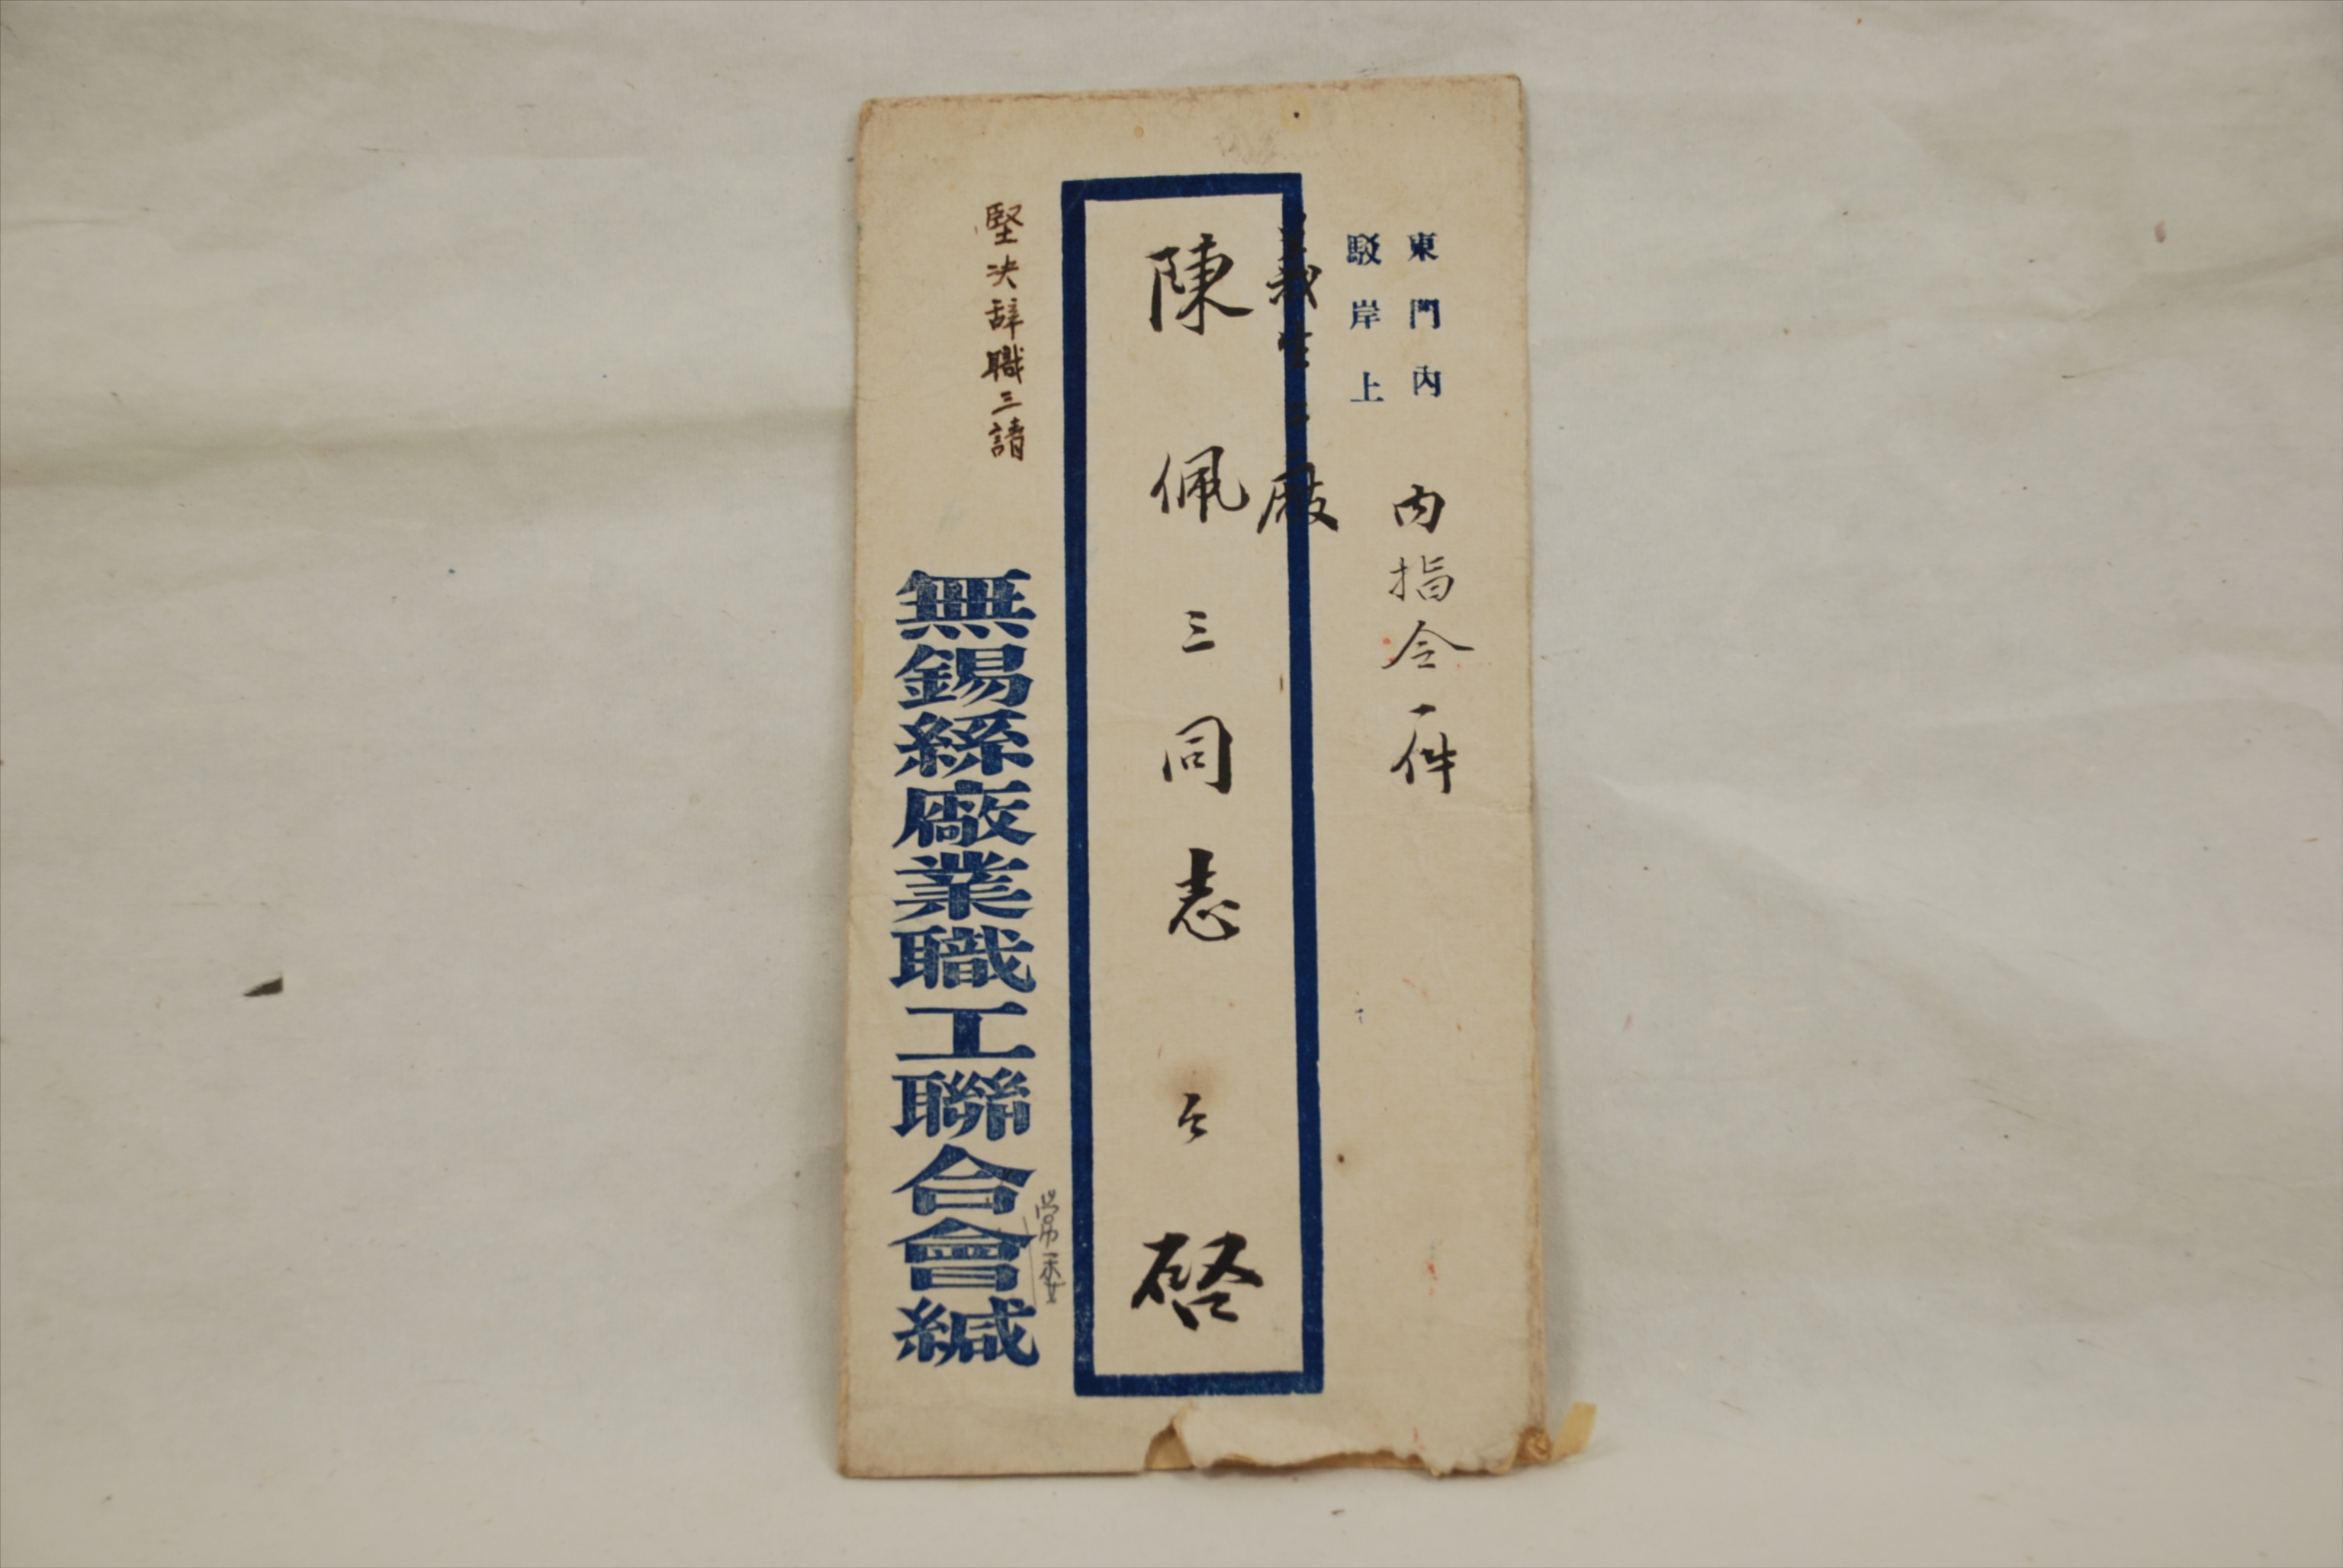 東門內
駁岸上
內指令一件
廠
陳佩三同志台啓
堅決辞職三請
無錫絲廠業職工聯合會緘
常委